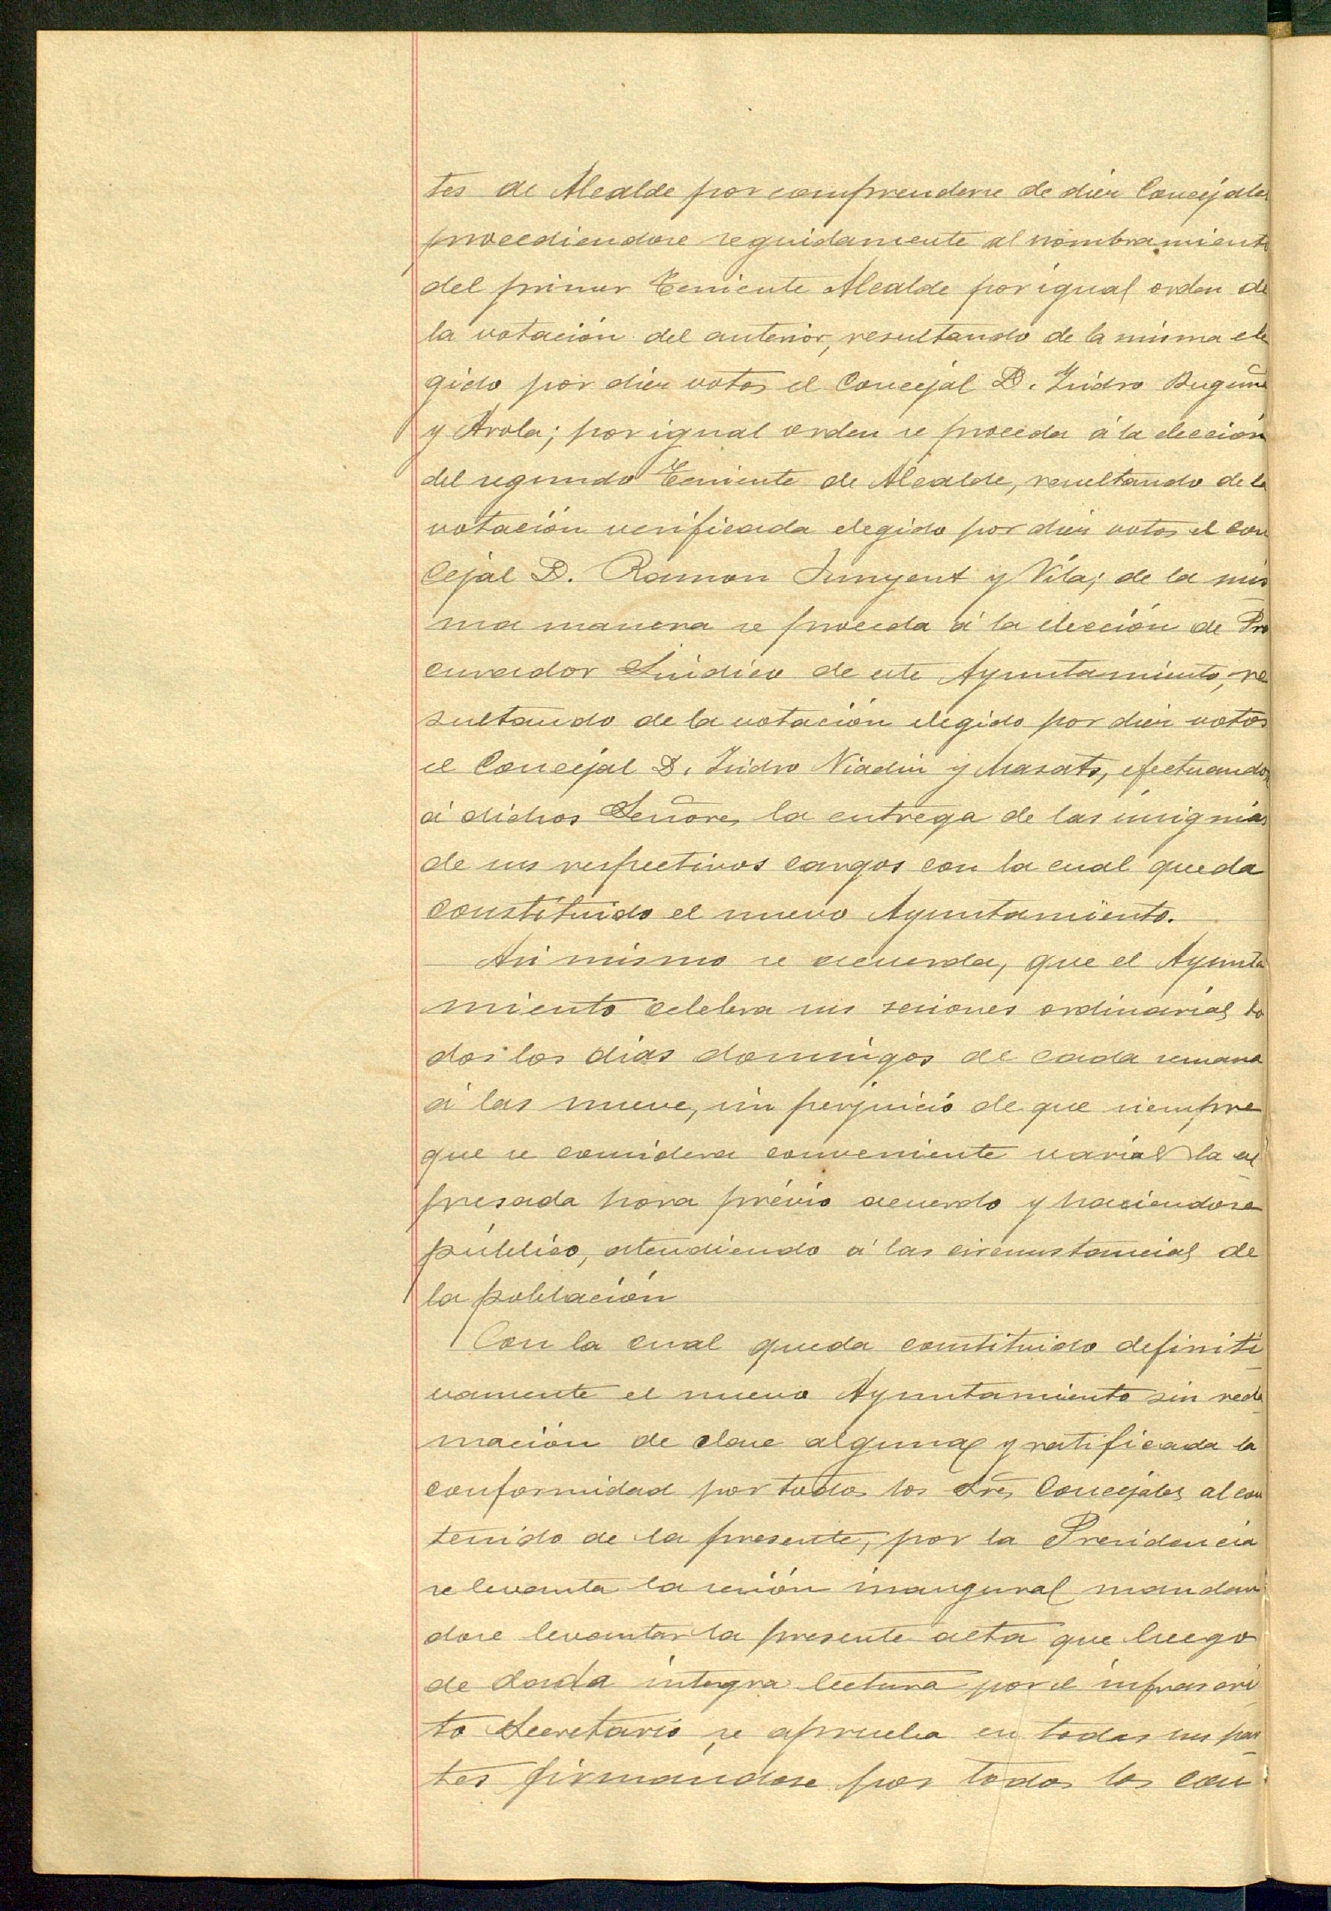 tes de Alcalde por comprenderse de diez Concejales
procediendose seguidamente al nombramiento
del primer Teniente Alcalde por igual orden de
la votación del anterior, resultando de la misma ele
gido por diez votos el Concejál D. Isidro
y Arola; por igual orden se proceda á la elección
del segundo Teniente de Alcalde, resultando de la
votación verificada elegido por diez votos el con
cejal D. Ramon Junyent y Vila; de la mis
ma manera se proceda á la elección de Pro
curador Sindico de este Ayuntamiento, re
sultando de la votación elegido por diez votos
el Concejal D. Isidro y Masats, efectuandose
á dichos Señores la entrega de las insignias
de sus respectivos cargos con la cual queda
constituido el nuevo Ayuntamiento.
Asi mismo se acuerda, que el Ayunta
miento celebra sus sesiones ordinarias to
dos los dias domingos de cada semana
á las nueve, sin perjuicio de que siempre
que se considera conveniente variar la ex
presada hora prévio acuerdo y haciendose
público, atendiendo á las circunstancias de
la población
Con la cual queda constituido definiti
vamente el nuevo Ayuntamiento sin recla
mación de clase alguna y ratificada la
conformidad por todos los Sres Concejales al con
tenido de la presente, por la Presidencia
se levanta la sesión inaugural mandan
dose levantar la presente acta que luego
de dada integra lectura por el infrascri
to Secretario se aprueba en todas sus par
tes firmándose por todos los con